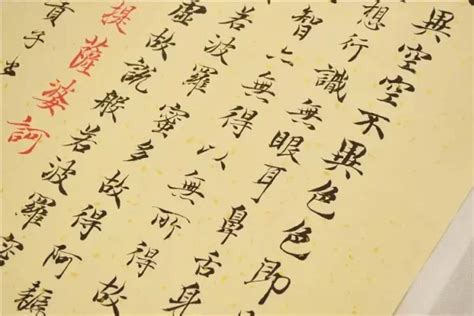 異空空不異色色即
想行識無眼耳鼻舌身
智亦無得以無所得故
若波羅蜜多故得阿耨
虛故說般若波羅蜜
提薩婆訶